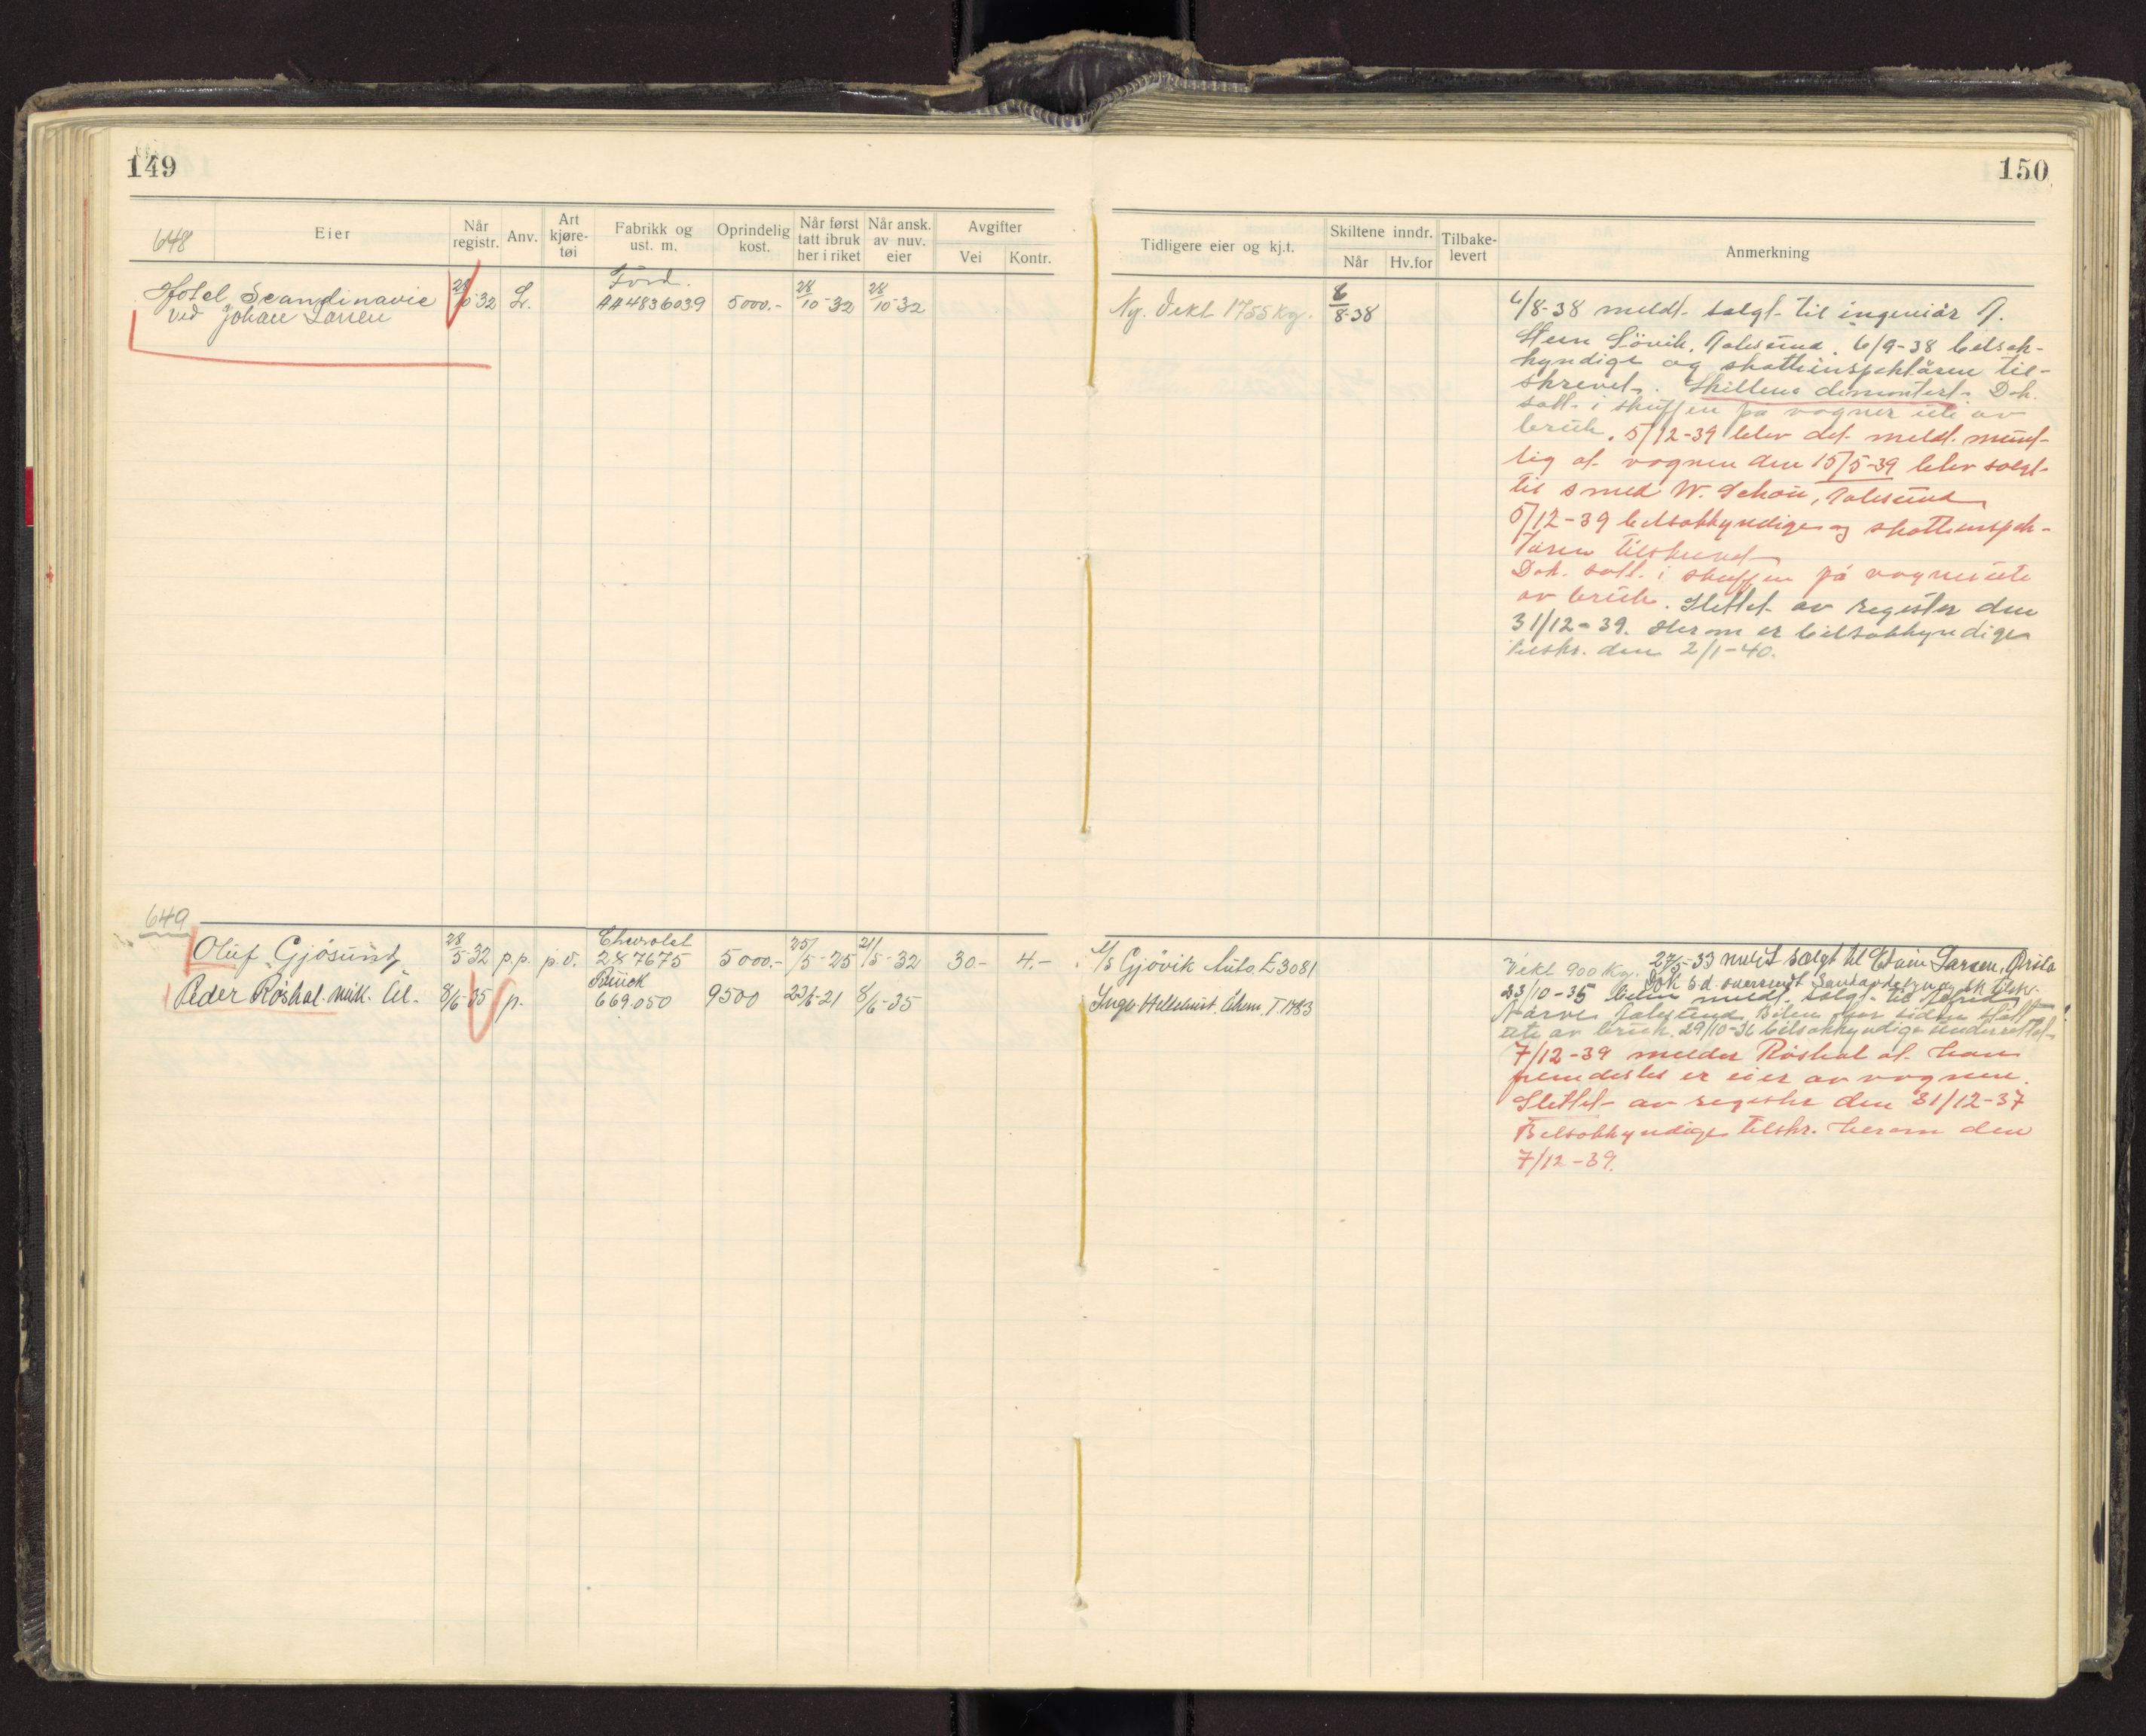 149
648
Eier
Når registr.
Anv.
Art kjøre- tøi
Fabrikk og ust. m.
Oprindelig kost.
Når først tatt ibruk her i riket
Når ansk. av nuv. eier
Avgifter
Vei
Kontr.
Ford.
Hotel Scandinavie 28/10-32 L. AA4836039 5000.- 28/10-32 28/10-32
ved Johan Larsen
649
Chevrolet
Oluf Gjøsund 28/5-32 p.p. p.v. 287675 5000.- 25/5-25 21/5-32 30.- 4.-
Buick
Peder Røshol. 8/6-35 p. 669.050 9500 23/6-21 8/6-35
150
Tidligere eier og kj.t.
Skiltene inndr.
Når
Hv.for
Tilbake- levert
Anmerkning
Ny. Vekt 1755 kg. 6/8-38
6/8-38 meldt solgt til ingeniør A.
Hein Lövik, Aalesund. 6/9-38 bilsak-
kyndige og skatteinspektören til-
skrevet. Skiltene demontert. Dok.
satt i skuffen på vogner ute av
bruk. 5/12-39 blev det meldt munt-
lig at vognen den 15/5-39 blev solgt
til smed W. Schou, Aalesund
5/12-39 bilsakkyndige og skatteinspek-
tören tilskrevet
Dok. satt i skuffen på vogner ute
av bruk. Slettet av register den
31/12-39. Herom er bilsakkyndige
tilskr. den 2/1-40.
A/S Gjövik Auto E3081
T.1783
Vekt 900 kg. 27/5-33 meldt solgt til Larsen,
Dok s.d. oversendt
23/10-35 bilen meldt solgt til
Aalesund. Bilen har siden stått
ute av bruk. 29/10-36 bilsakkyndige underrettet
7/12-39 melder Røshol at han
fremdeles er eier av vognen.
Slettet av register den 31/12-37
Bilsakkyndige tilskr. herom den
7/12-39.